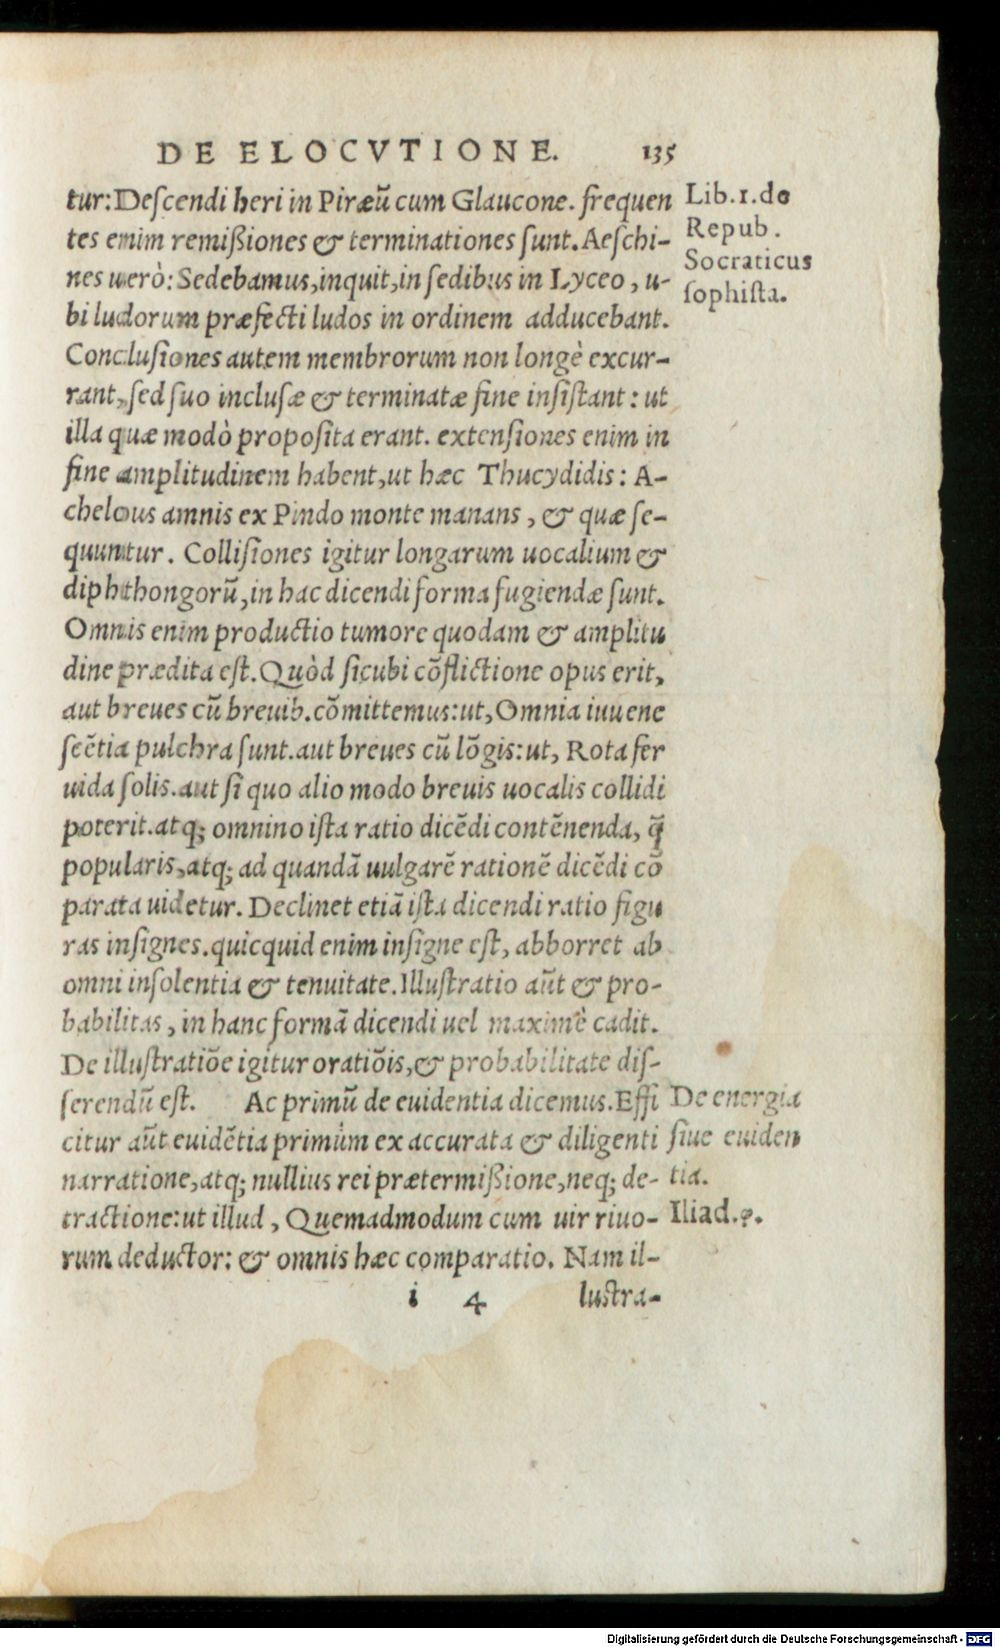 DE ELOCVTIONE. 135
tur: Deſcendi heri in Piræū cum Glaucone. frequen
tes enim remißiones & terminationes ſunt. Aeſchi-
nes uerò: Sedebamus, inquit, in ſedibus in Lyceo, u-
bi ludorum præfecti ludos in ordinem adducebant.
Concluſiones autem membrorum non longè excur-
rant, ſed ſuo incluſæ & terminatæ fine inſiſtant: ut
illa quæ modò propoſita erant. extenſiones enim in
fine amplitudinem habent, ut hæc Thucydidis: A-
chelous amnis ex Pindo monte manans, & quæ ſe-
quuntur. Colliſiones igitur longarum uocalium &
diphthongorū, in hac dicendi forma fugiendæ ſunt.
Omnis enim productio tumore quodam & amplitu
dine prædita eſt. Quòd ſicubi cōflictione opus erit,
aut breues cū breuib. cōmittemus: ut, Omnia iuuene
ſcētia pulchra ſunt. aut breues cū lōgis: ut, Rota fer
uida ſolis. aut ſi quo alio modo breuis uocalis collidi
poterit. atq; omnino iſta ratio dicēdi contēnenda, q̄
popularis, atq; ad quandā uulgarē rationē dicēdi cō
parata uidetur. Declinet etiā iſta dicendi ratio figu
ras inſignes. quicquid enim inſigne eſt, abhorret ab
omni inſolentia & tenuitate. Illuſtratio aūt & pro-
babilitas, in hanc formā dicendi uel maximè cadit.
De illuſtratiōe igitur oratiōis, & probabilitate diſ-
ſerendū eſt. Ac primū de euidentia dicemus. Effi
citur aūt euidētia primùm ex accurata & diligenti
narratione, atq; nullius rei prætermißione, neq; de-
tractione: ut illud, Quemadmodum cum uir riuo-
rum deductor: & omnis hæc comparatio. Nam il-
i 4 luſtra-
Lib. 1. de
Repub.
Socraticus
ſophiſta.
De energia
ſiue euiden
tia.
Iliad. φ.
Digitalisierung gefördert durch die Deutsche Forschungsgemeinschaft - DFG